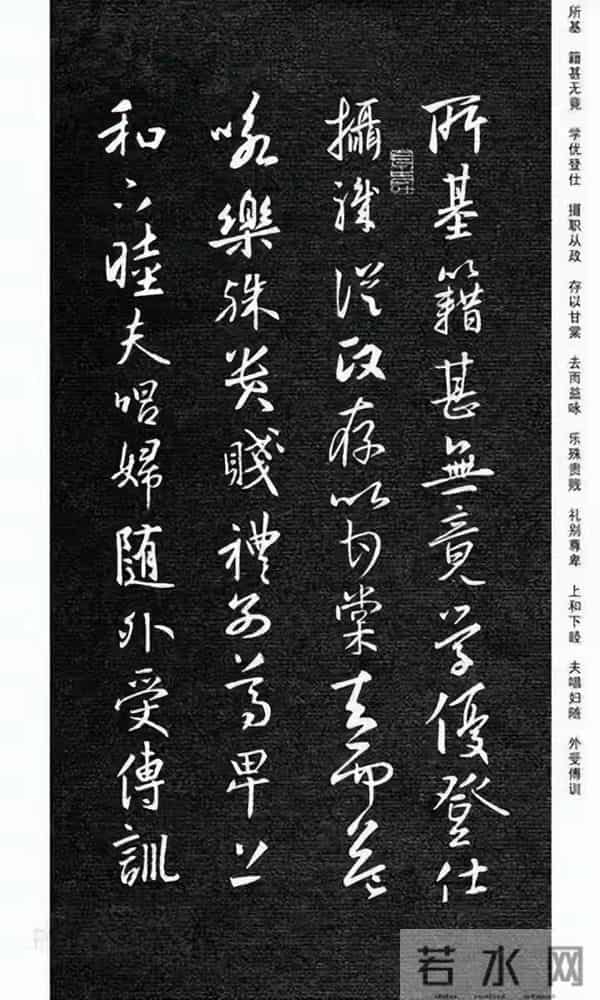 所基 籍甚无竟 学优登仕 摄职从政 存以甘棠 去而益咏 乐殊贵贱 礼别尊卑 上和下睦 夫唱妇随 外受傅训
所基籍甚無竟学優登仕
攝職從政存以甘棠去而益
咏樂殊貴賤禮别尊卑上
和下睦夫唱婦随外受傅訓
若水网